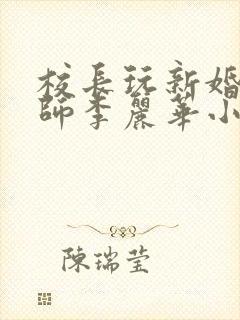 校長玩新婚
師李麗華小
陳瑞莹